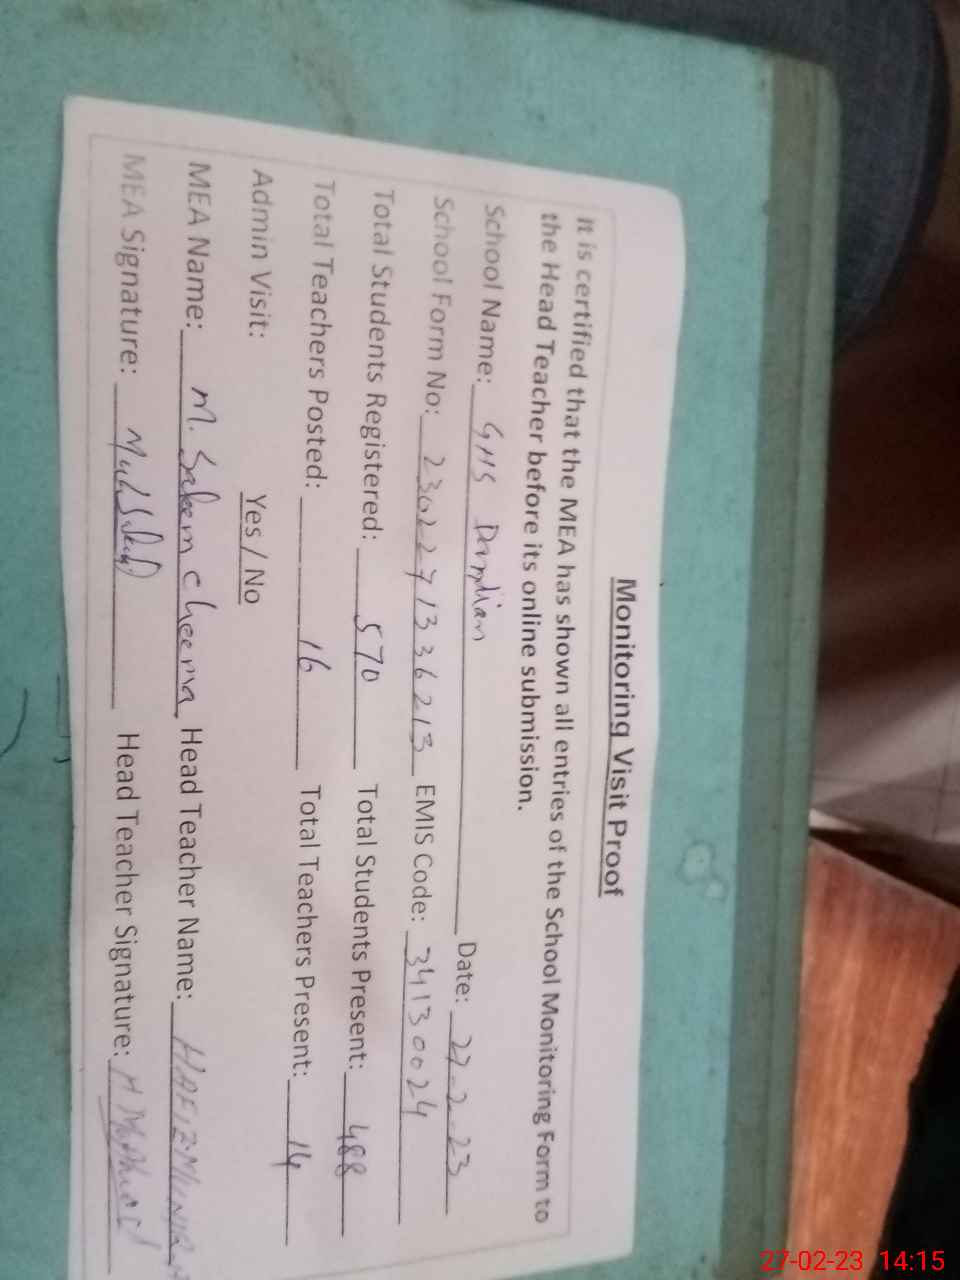 Monitoring Visit Proof
It is certified that the MEA has shown all entries of the School Monitoring Form to
the Head Teacher before its online submission.
School Name: GHS Dandian Date: 27-2-23
School Form No: 2302271336213 EMIS Code: 34130024
Total Students Registered: 570 Total Students Present: 488
Total Teachers Posted: 16 Total Teachers Present: 14
Admin Visit: Yes / No
MEA Name: M. Saleem Cheema Head Teacher Name: HAFIZ MUNIR
MEA Signature: Head Teacher Signature:
27-02-23 14:15